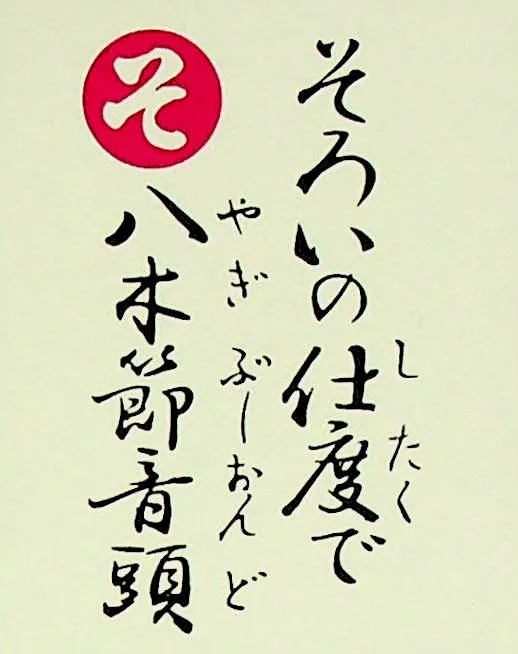 そろいの仕度で
したく
そ
八木節音頭
やぎぶしおんど